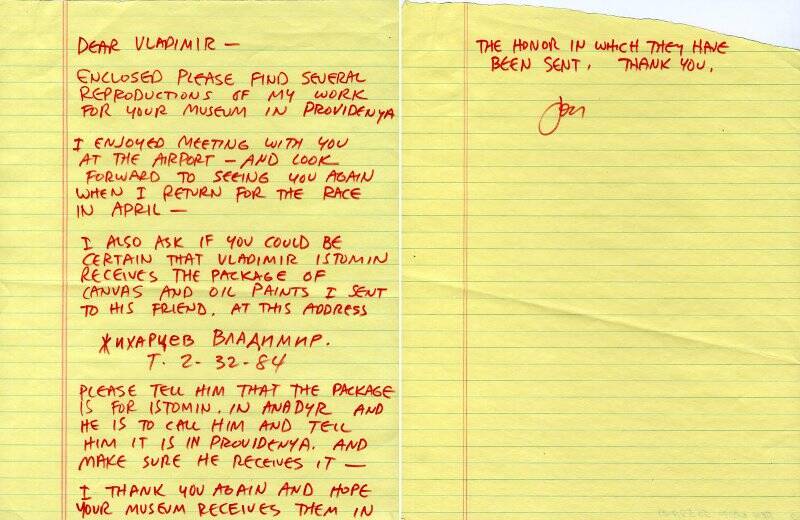 DEAR VLADIMIR —
ENCLOSED PLEASE FIND SEVERAL
REPRODUCTIONS OF MY WORK
FOR YOUR MUSEUM IN PROVIDENYA
I ENJOYED MEETING WITH YOU
AT THE AIRPORT — AND LOOK
FORWARD TO SEEING YOU AGAIN
WHEN I RETURN FOR THE RACE
IN APRIL —
I ALSO ASK IF YOU COULD BE
CERTAIN THAT VLADIMIR ISTOMIN
RECEIVES THE PACKAGE OF
CANVAS AND OIL PAINTS I SENT
TO HIS FRIEND. AT THIS ADDRESS
ЖИХАРЦЕВ ВЛАДИМИР.
Т. 2-32-84
PLEASE TELL HIM THAT THE PACKAGE
IS FOR ISTOMIN. IN ANADYR AND
HE IS TO CALL HIM AND TELL
HIM IT IS IN PROVIDENYA. AND
MAKE SURE HE RECEIVES IT —
I THANK YOU AGAIN AND HOPE
YOUR MUSEUM RECEIVES THEM IN
THE HONOR IN WHICH THEY HAVE
BEEN SENT. THANK YOU.
Jon